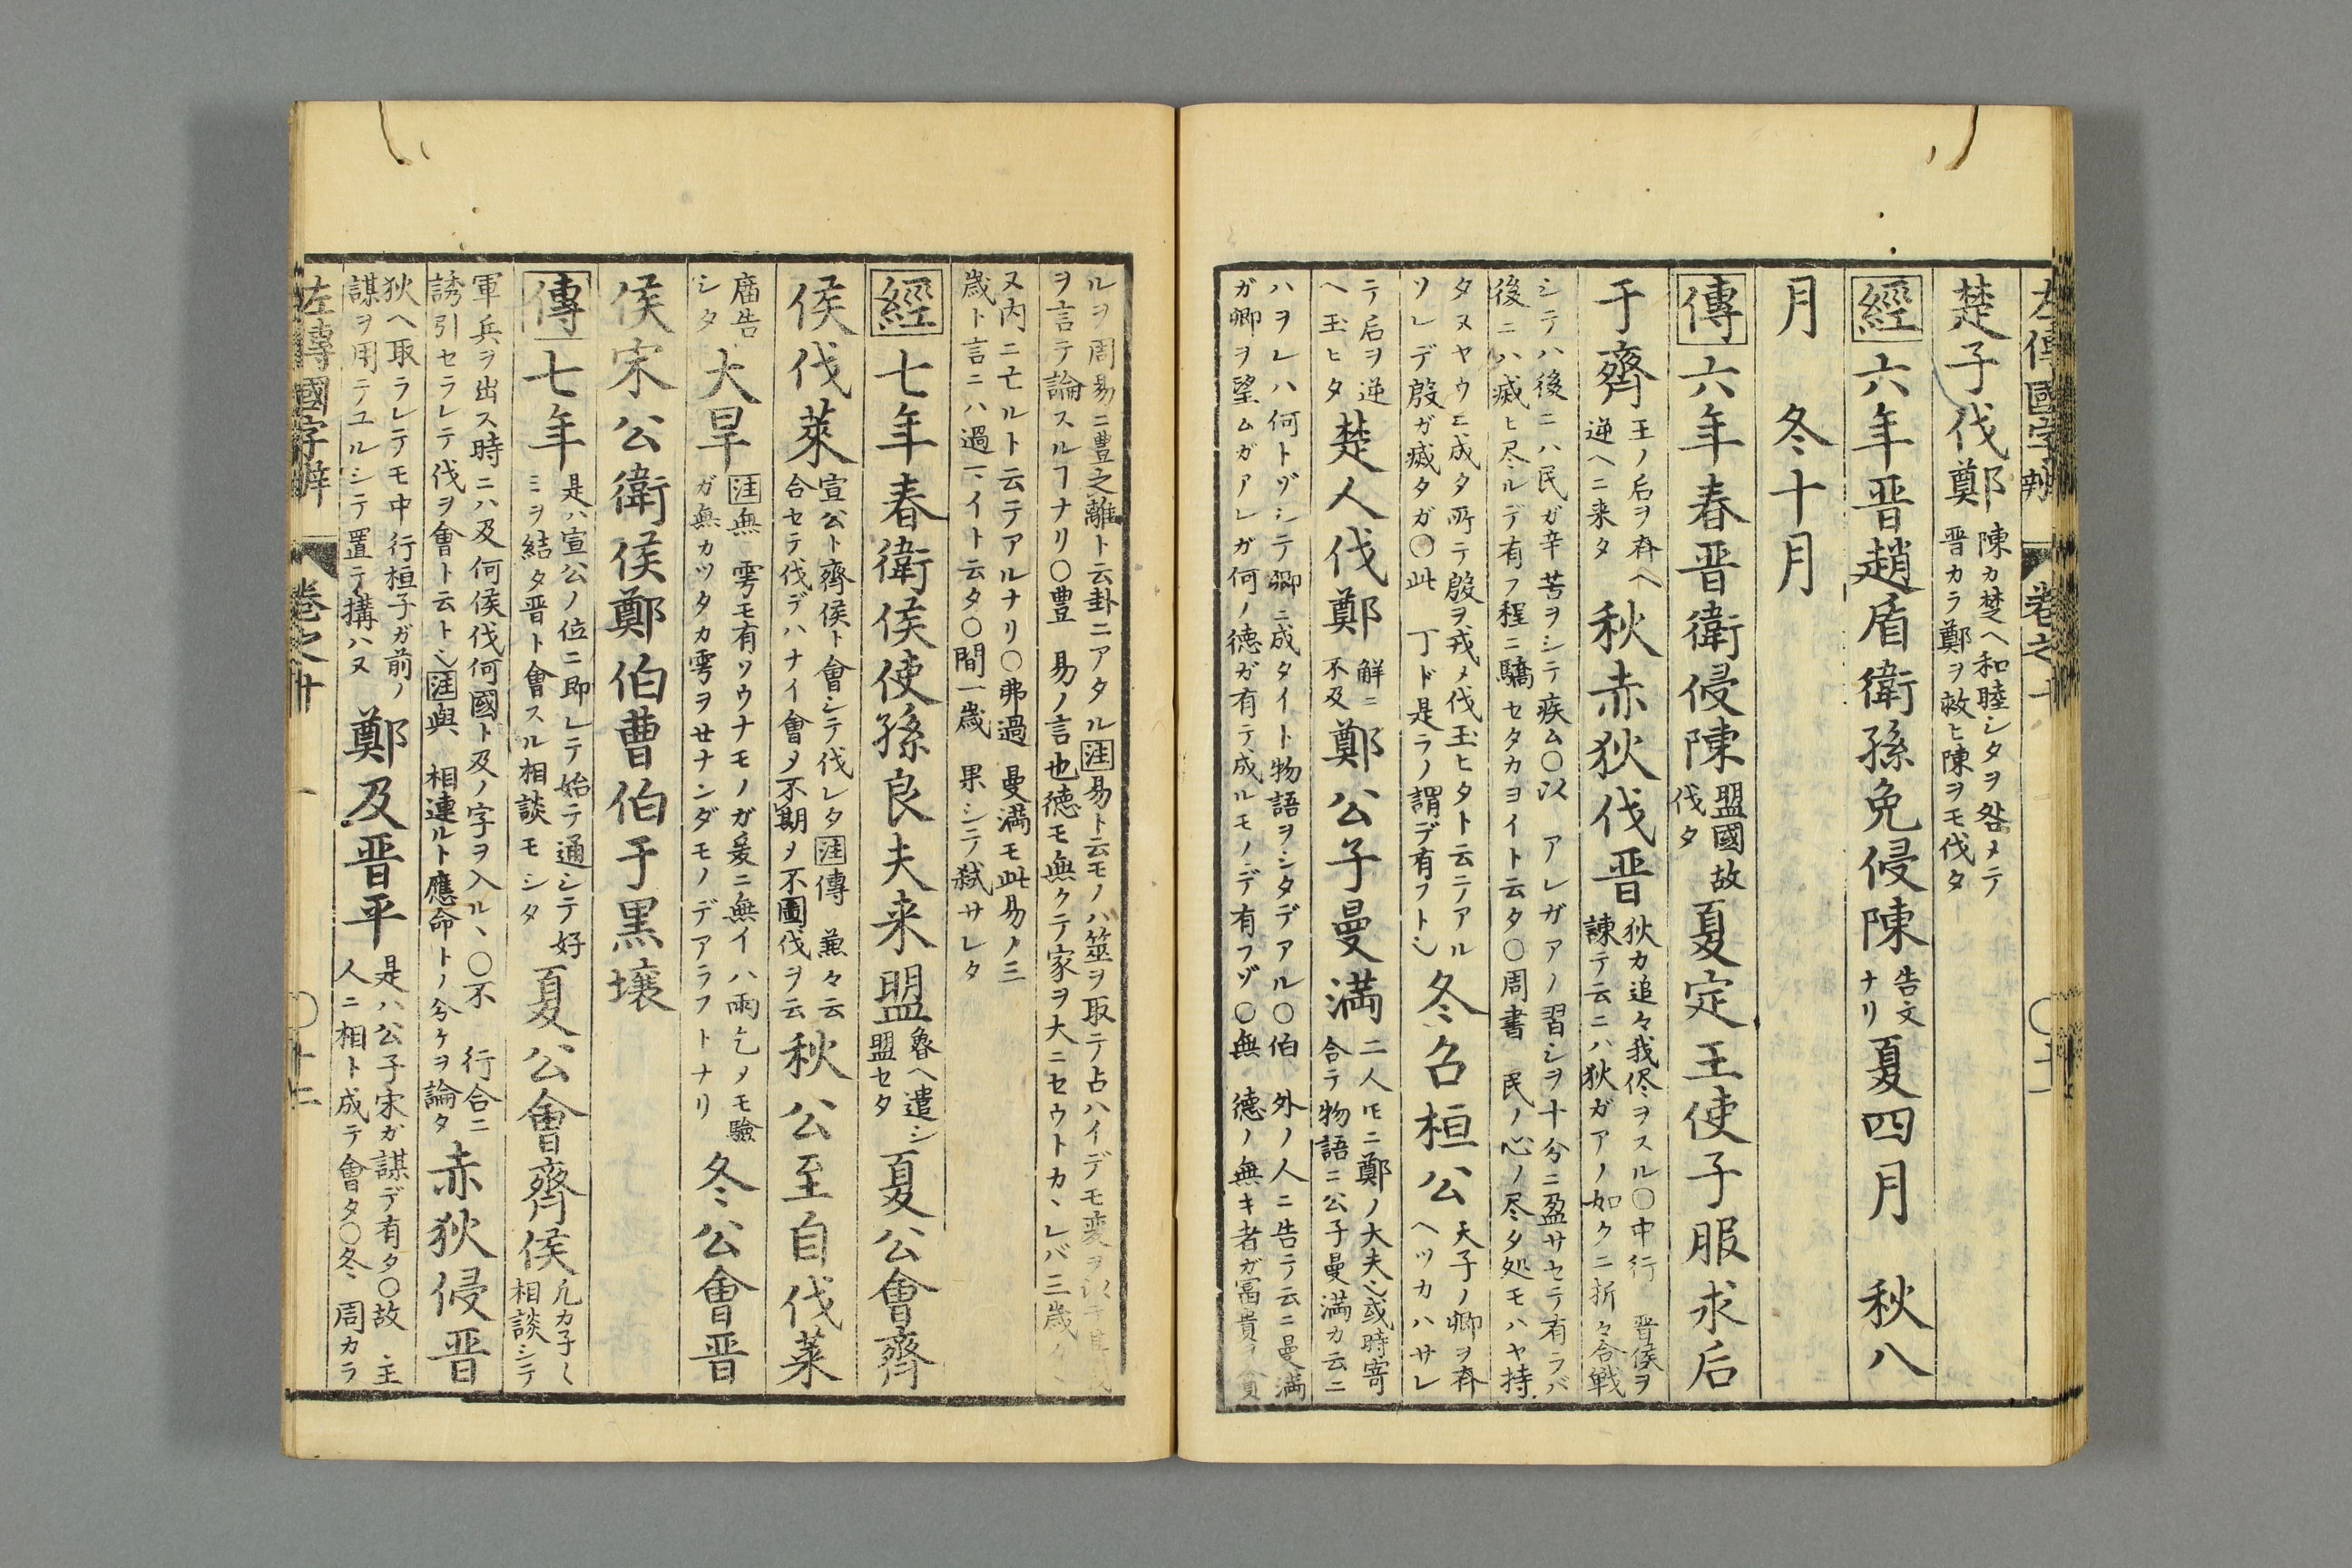 左傳國字辨 卷之十
楚子伐鄭 陳カ楚ヘ和睦シタヲ咎メテ
晋カラ鄭ヲ救ヒ陳ヲモ伐タ
經 六年晋趙盾衛孫免侵陳 告文
ナリ 夏四月 秋八
月 冬十月
傳 六年春晋衛侵陳 盟國故
伐タ 夏定王使子服求后
于齊 王ノ后ヲ斉ヘ
逆ヘニ来タ 秋赤狄伐晋 狄カ追々我侭ヲスル〇中行 晋侯ヲ
諌テ云ニハ狄ガアノ如クニ折々合戦
シテハ後ニハ民ガ辛苦ヲシテ疾ム〇以 アレガアノ習シヲ十分ニ盈サセテ有ラバ
後ニハ瘢ヒ尽ルデ有フ程ニ驕セタカヨイト云タ〇周書 民ノ心ノ尽タ処モハヤ持
タヌヤウニ成タ所テ殷ヲ戎メ伐玉ヒタト云テアル
ソレデ殷ガ瘢タガ〇此 丁ド是ラノ謂デ有フト也 冬召桓公 天子ノ卿ヲ斉
ヘツカハサレ
テ后ヲ逆
ヘ玉ヒタ 楚人伐鄭 解ニ
不及 鄭公子曼満 二人𪜈ニ鄭ノ大夫也或時寄
合テ物語ニ公子曼満カ云ニ
ハヲレハ何トゾシテ卿ニ成タイト物語ヲシタデアル〇伯 外ノ人ニ告テ云ニ曼満
ガ卿ヲ望ムガアレガ何ノ徳ガ有テ成ルモノデ有フゾ〇無 徳ノ無キ者ガ冨貴ヲ貪
ルヲ周易ニ豊之離ト云卦ニアタル 注 易ト云モノハ筮ヲ取テ占ハイデモ変ヲ以テ
ヲ言テ論スルヿナリ〇豊 易ノ言也徳モ無クテ家ヲ大ニセウトカヽレバ三歳ノ
ヌ内ニ亡ルト云テアルナリ〇弗過 曼満モ此易ノ三
歳ト言ニハ過マイト云タ〇間一歳 果シテ弑サレタ
經 七年春衛侯使孫良夫来盟 魯ヘ遣シ
盟セタ 夏公會齊
侯伐萊 宣公ト齊侯ト會シテ伐レタ 注 傳 兼々云
合セテ伐デハナイ會メ不期メ不圖伐ヲ云 秋公至自伐萊
庿告
シタ 大旱 注 無 雩モ有ソウナモノガ爰ニ無イハ雨乞メモ驗
ガ無カツタカ雩ヲセナンダモノデアラフトナリ 冬公會晋
侯宋公衛侯鄭伯曹伯于黒壌
傳 七年 是ハ宣公ノ位ニ即レテ始テ通シテ好
ミヲ結タ晋ト會スル相談モシタ 夏公會齊侯 凢カ子〱
相談シテ
軍兵ヲ出ス時ニハ及何侯伐何國ト及ノ字ヲ入ル、〇不 行合ニ
誘引セラレテ伐ヲ會ト云ト也 注 與 相連ルト應命トノ分ケヲ論タ 赤狄侵晋
狄ヘ取ラレテモ中行桓子ガ前ノ
謀ヲ用テユルシテ置テ搆ハヌ 鄭及晋平 是ハ公子宋ガ謀デ有タ〇故 主
人ニ相ト成テ會タ〇冬 周カラ
左傳國字辨 卷之十 〇十二